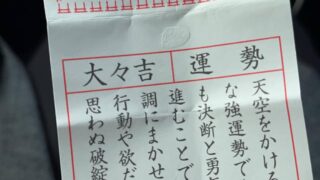 運勢
大々吉
天空をかける
な強運勢で
も決断と勇
進むことで
調にまかせ
行動や欲だ
思わぬ破綻